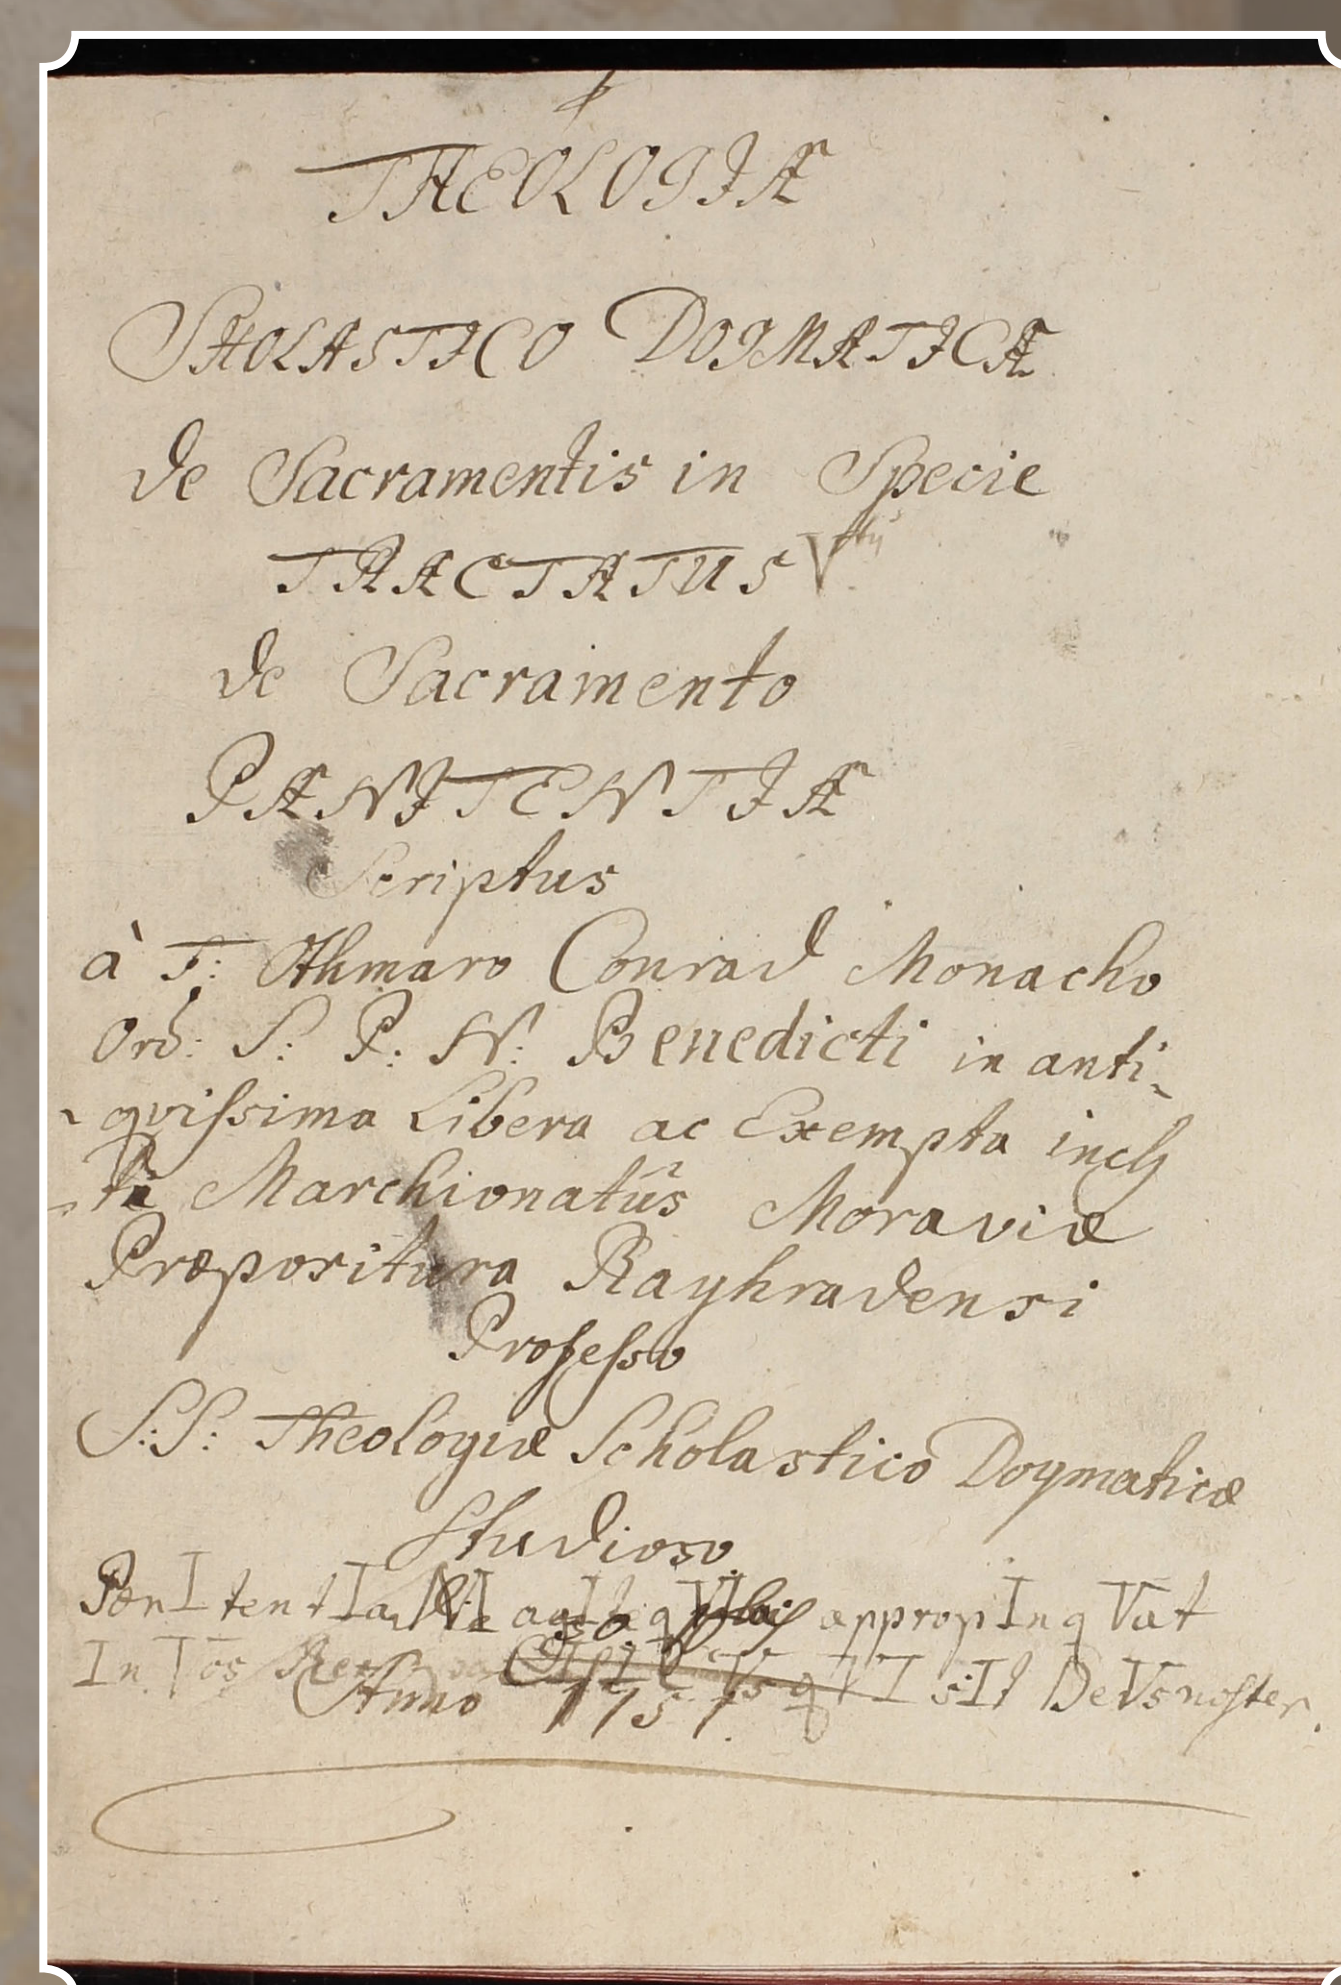 THEOLOGIÆ
SHOLASTICO DOGMATICÆ
de Sacramentis in Specie
TRACTATUS V
de Sacramento
PÆNITENTIÆ
Scriptus
à F: Othmaro Conrad Monacho
Ord: S: P: N: Benedicti in anti-
-qvissima Libera ac Exempta incly
-ti Marchionatûs Moraviæ
Præpositura Rayhradensi
Professo
S:S: Theologiæ Scholastico Dogmaticæ
Studioso
PænItentIaM appropInqVat
In Vos qVI sIt DeVs noster.
Anno 1757.